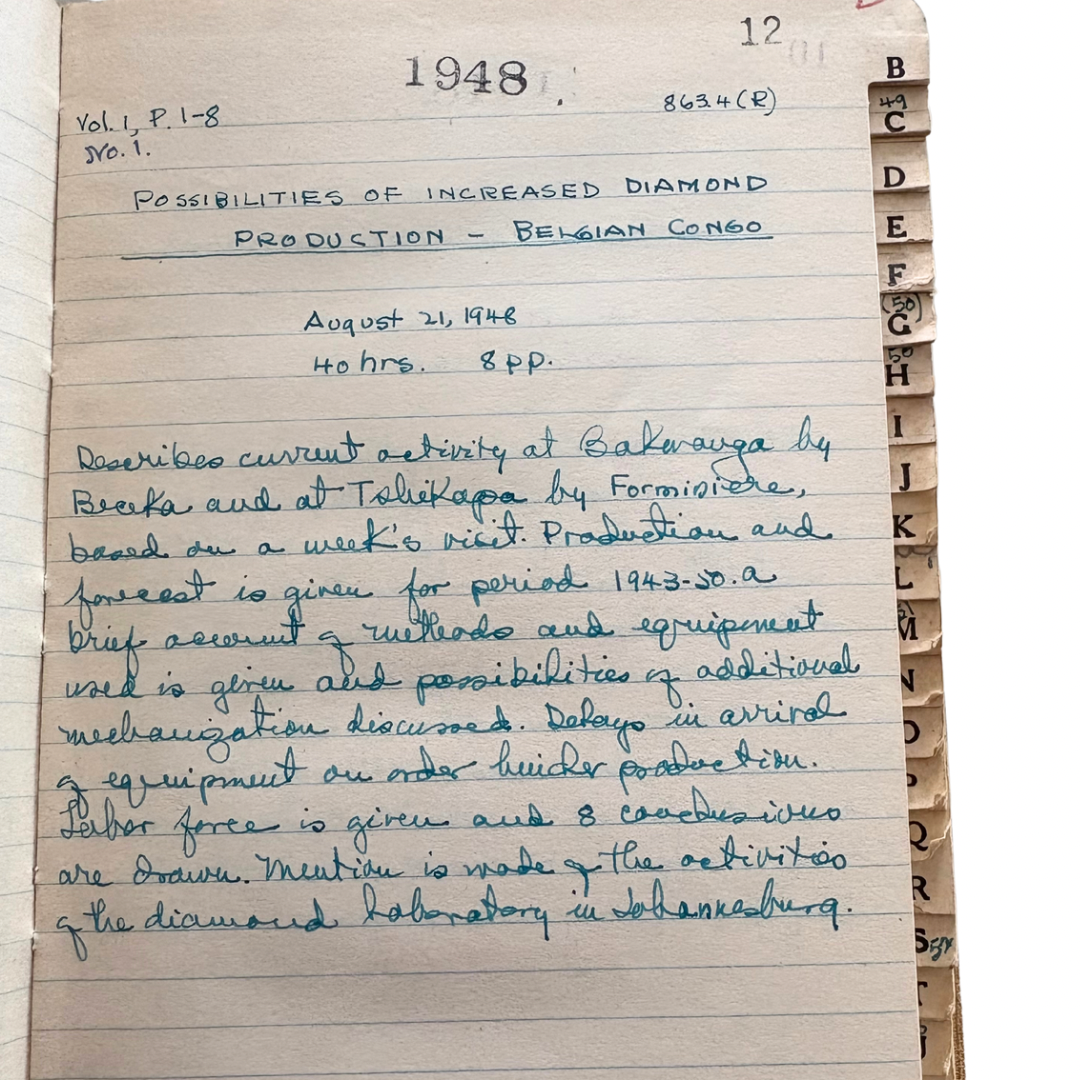 12
1948
Vol. 1, P. 1-8
863.4 (R)
No. 1.
POSSIBILITIES OF INCREASED DIAMOND
PRODUCTION - BELGIAN CONGO
August 21, 1948
40 hrs. 8 pp.
Describes current activity at Bakwanga by
Beceka and at Tshikapa by Forminiere,
based on a week's visit. Production and
forecast is given for period 1943-50. A
brief account of methods and equipment
used is given and possibilities of additional
mechanization discussed. Delays in arrival
of equipment on order hinder production.
Labor force is given and 8 conclusions
are drawn. Mention is made of the activities
of the diamond laboratory in Johannesburg.
B
49
C
D
E
F
(50)
G
50
H
I
J
K
L
M
N
O
P
Q
R
S
T